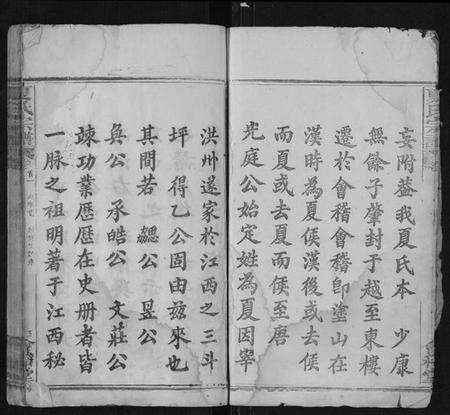 妄附葢我夏氏本 少康
無餘子肇封于越至東樓
遷於會稽會稽卽塗山在
漢時為夏侯漢後或去侯
而夏或去夏而侯至唐
光庭公始定姓為夏因宰
洪州遂家於江西之三斗
坪 得乙公固由兹來也
其間若 勰公 昱公
奐公 承皓公 文莊公
竦功業歷歷在史册者皆
一脉之祖明著于江西秘